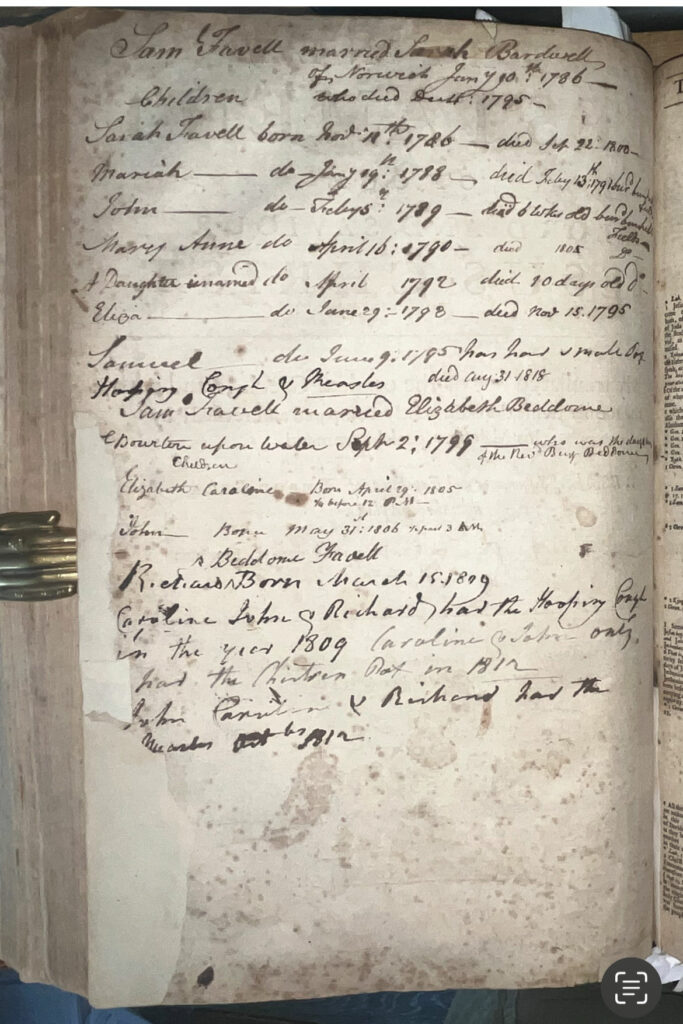 Sam Favell married Sarah Bardwell
of Norwich Jany 10th: 1786 —
Children who died Decr: 1795 —
Sarah Favell born Novr 11th: 1786 — died Sept 22: 1800 —
Mariah —— do — Jany 19th: 1788 — died Feby 13th: 1791 buried
John —— do — Feby 5th: 1789 — died 6 wks old buried
Fields
Do
Mary Anne do April 16: 1790 — died 1805
A Daughter unnamed do April 1792 died 10 days old Do
Eliza —— do June 29: 1793 — died Nov 15. 1795
Samuel —— do June 9: 1795 has had small Pox
Hooping Cough & Measles died Aug 31 1818
Sam Favell married Elizabeth Beddome
Bourton upon Water Sept 2: 1799 —— who was the daughter
of the Revd Benj Beddome
Children
Elizabeth Caroline Born April 29: 1805
1/4 before 12 P.M
John — Born May 31st: 1806 past 3 A.M.
Beddome Favell
Richard ^ Born March 15: 1809
Caroline John & Richard had the Hooping Cough
in the year 1809 Caroline & John only,
had the Chicken Pox in 1812
John Caroline & Richard had the
Measles 1812